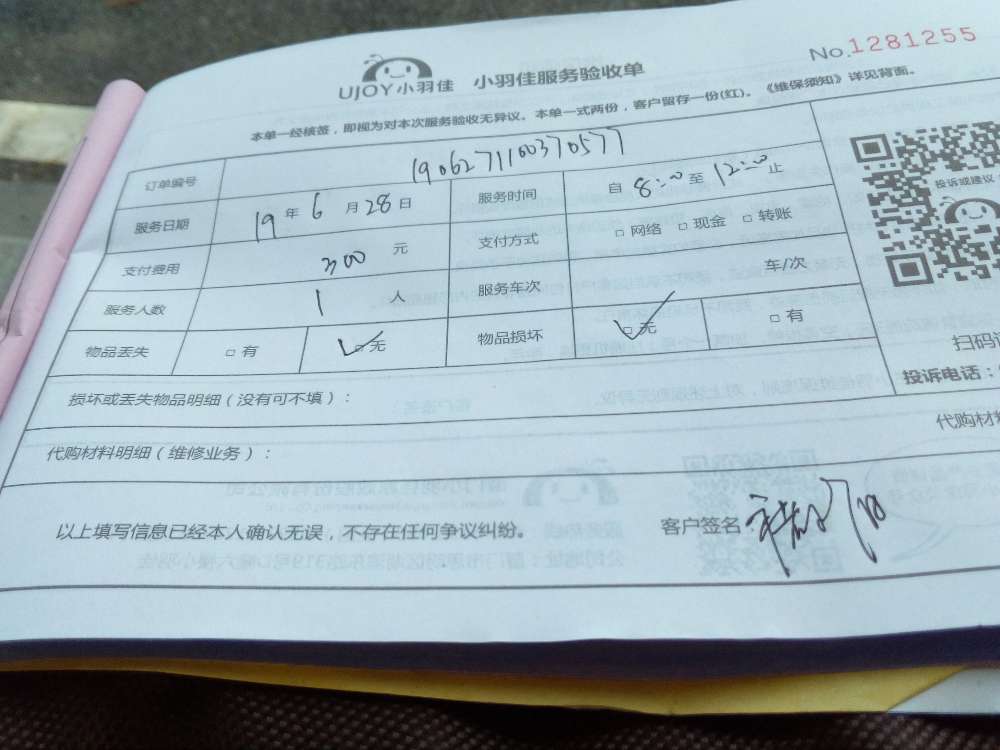 No.1281255
UJOY小羽佳 小羽佳服务验收单
本单一经核签，即视为对本次服务验收无异议。本单一式两份，客户留存一份(红)。《维保须知》详见背面。
订单编号 1906271100370577
服务日期 19年6月28日 服务时间 自8:00至12:00止
支付费用 300元 支付方式 □网络 □现金 □转账
服务人数 1人 服务车次 车/次
物品丢失 □有 ✓□无 物品损坏 ✓□无 □有
投诉或建议
扫码
投诉电话：
损坏或丢失物品明细（没有可不填）：
代购材料明细（维修业务）： 代购材
以上填写信息已经本人确认无误，不存在任何争议纠纷。 客户签名